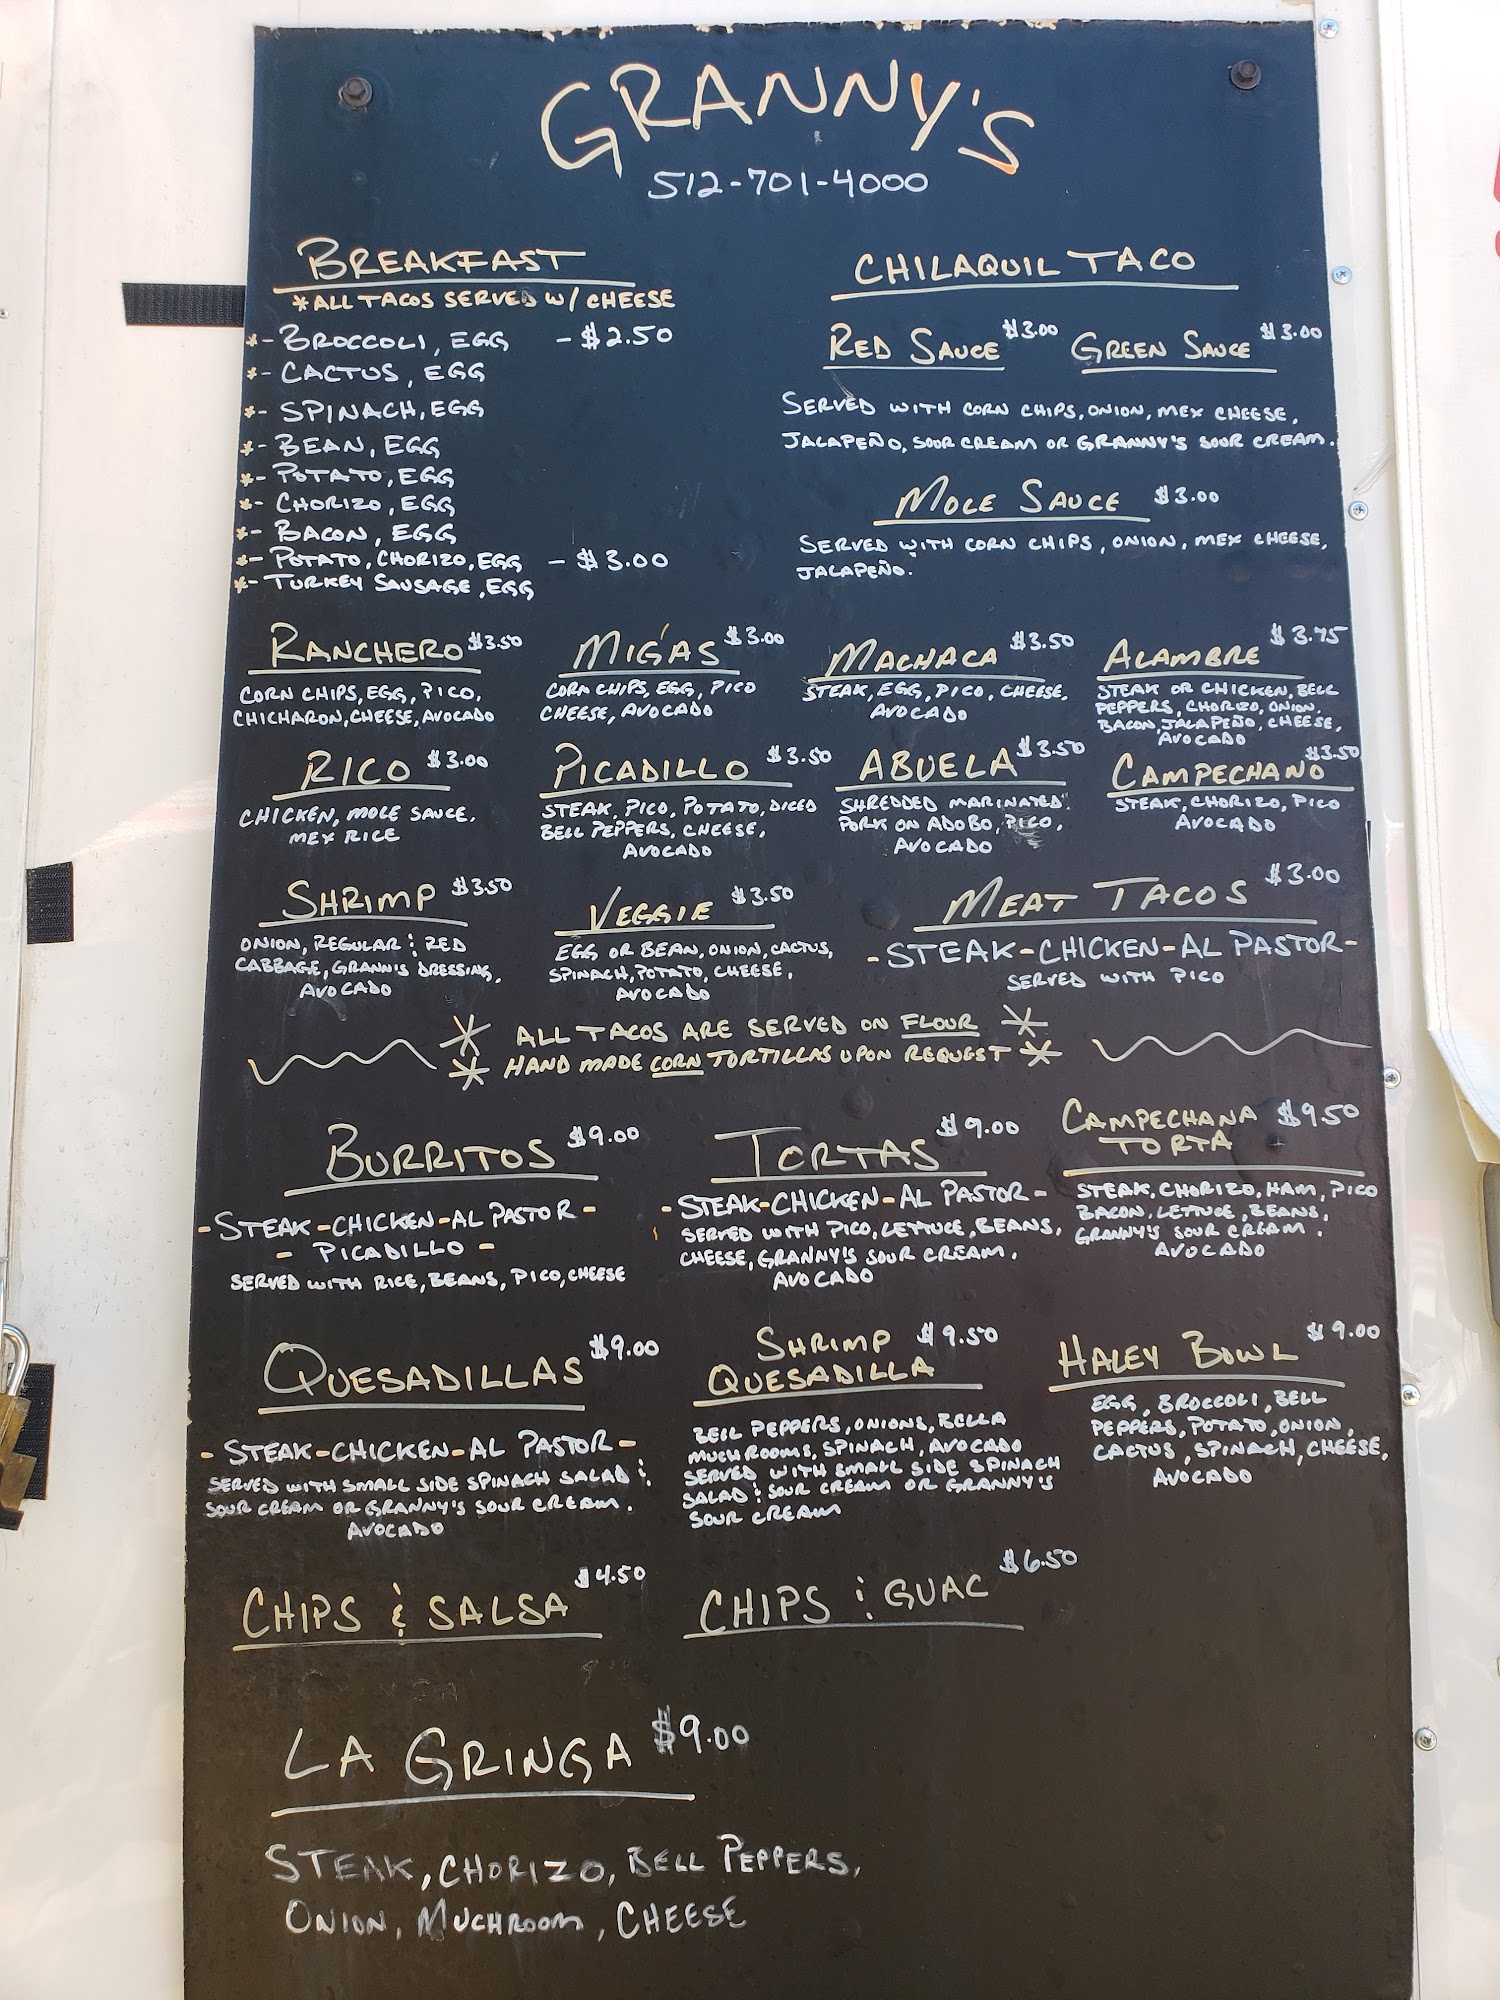 GRANNY'S
512-701-4000
BREAKFAST
*ALL TACOS SERVED W/ CHEESE
*- BROCCOLI, EGG - $2.50
*- CACTUS, EGG
*- SPINACH, EGG
*- BEAN, EGG
*- POTATO, EGG
*- CHORIZO, EGG
*- BACON, EGG
*- POTATO, CHORIZO, EGG - $3.00
*- TURKEY SAUSAGE, EGG
CHILAQUIL TACO
RED SAUCE $3.00 GREEN SAUCE $3.00
SERVED WITH CORN CHIPS, ONION, MEX CHEESE,
JALAPEÑO, SOUR CREAM OR GRANNY'S SOUR CREAM.
MOLE SAUCE $3.00
SERVED WITH CORN CHIPS, ONION, MEX CHEESE,
JALAPEÑO.
RANCHERO $3.50
CORN CHIPS, EGG, PICO,
CHICHARON, CHEESE, AVOCADO
MIGAS $3.00
CORN CHIPS, EGG, PICO
CHEESE, AVOCADO
MACHACA $3.50
STEAK, EGG, PICO, CHEESE,
AVOCADO
ALAMBRE $3.75
STEAK OR CHICKEN, BELL
PEPPERS, CHORIZO, ONION,
BACON, JALAPEÑO, CHEESE,
AVOCADO
RICO $3.00
CHICKEN, MOLE SAUCE,
MEX RICE
PICADILLO $3.50
STEAK, PICO, POTATO, DICED
BELL PEPPERS, CHEESE,
AVOCADO
ABUELA $3.50
SHREDDED MARINATED
PORK ON ADOBO, PICO,
AVOCADO
CAMPECHANO $3.50
STEAK, CHORIZO, PICO
AVOCADO
SHRIMP $3.50
ONION, REGULAR & RED
CABBAGE, GRANNIS DRESSING,
AVOCADO
VEGGIE $3.50
EGG OR BEAN, ONION, CACTUS,
SPINACH, POTATO, CHEESE,
AVOCADO
MEAT TACOS $3.00
-STEAK-CHICKEN-AL PASTOR-
SERVED WITH PICO
* ALL TACOS ARE SERVED ON FLOUR *
* HAND MADE CORN TORTILLAS UPON REQUEST *
BURRITOS $9.00
-STEAK-CHICKEN-AL PASTOR-
- PICADILLO -
SERVED WITH RICE, BEANS, PICO, CHEESE
TORTAS $9.00
-STEAK-CHICKEN-AL PASTOR-
SERVED WITH PICO, LETTUCE, BEANS,
CHEESE, GRANNY'S SOUR CREAM.
AVOCADO
CAMPECHANA $9.50
TORTA
STEAK, CHORIZO, HAM, PICO
BACON, LETTUCE, BEANS,
GRANNY'S SOUR CREAM.
AVOCADO
QUESADILLAS $9.00
-STEAK-CHICKEN-AL PASTOR-
SERVED WITH SMALL SIDE SPINACH SALAD &
SOUR CREAM OR GRANNY'S SOUR CREAM.
AVOCADO
SHRIMP $9.50
QUESADILLA
BELL PEPPERS, ONIONS, BELLA
MUCHROOMS, SPINACH, AVOCADO
SERVED WITH SMALL SIDE SPINACH
SALAD & SOUR CREAM OR GRANNY'S
SOUR CREAM
HALEY BOWL $9.00
EGG, BROCCOLI, BELL
PEPPERS, POTATO, ONION,
CACTUS, SPINACH, CHEESE,
AVOCADO
CHIPS & SALSA $4.50
CHIPS & GUAC $6.50
LA GRINGA $9.00
STEAK, CHORIZO, BELL PEPPERS,
ONION, MUCHROOM, CHEESE